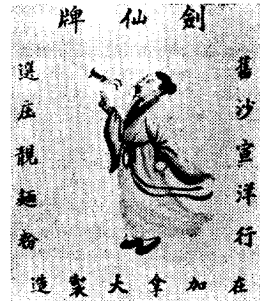 劍仙牌
舊沙宣洋行
選庄靚麵粉
在加拿大製造